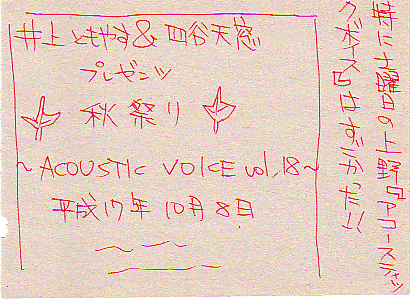 井上ともやす&四谷天窓
プレゼンツ
秋祭り
~ACOUSTIC VOICE vol.18~
平成17年10月8日
共に土曜日の上野『アコースティッ
クボイス』はすごかった!!